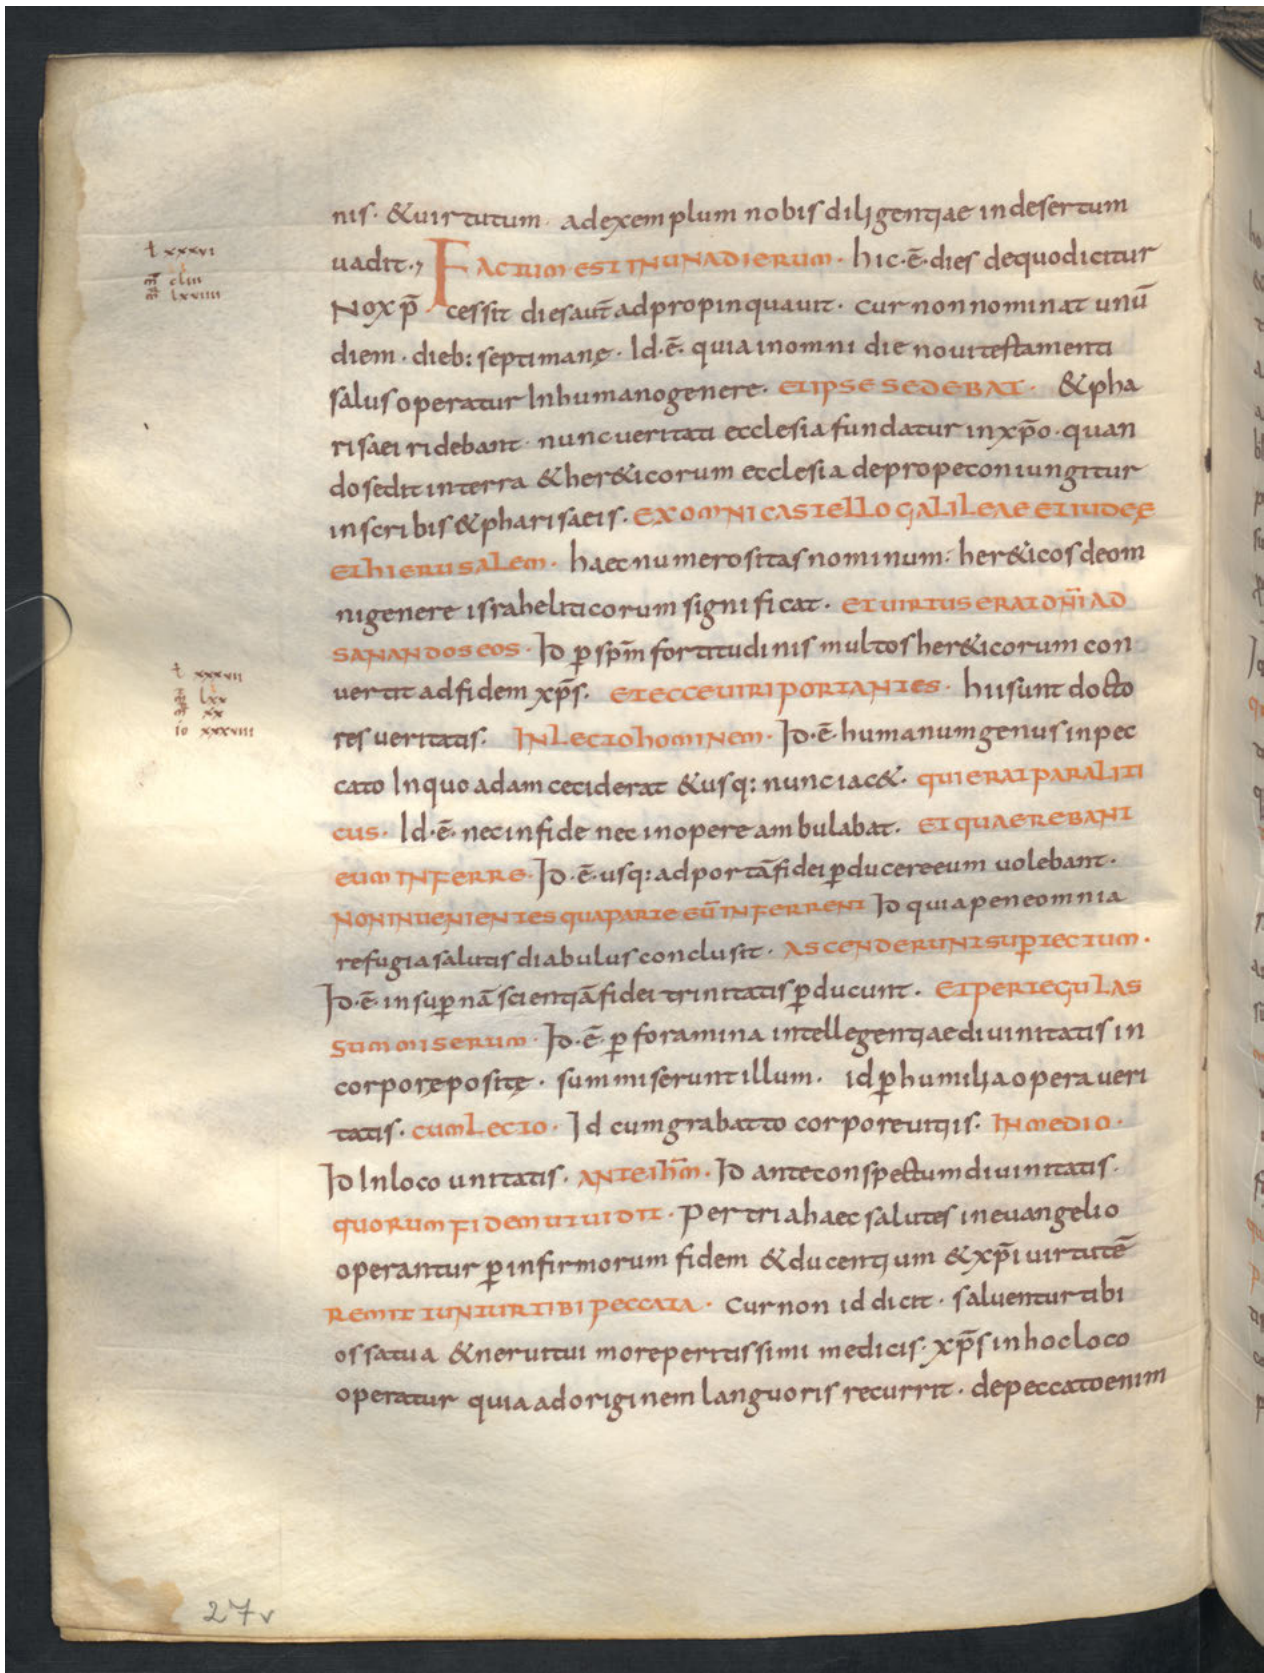 nis· &uirtutum· adexemplum nobis diligentiae indesertum
ł xxxvi
uadit·, FACTUM EST IN UNA DIERUM· hic·ē·dies dequodicitur
m̄ clııı
m̄ lxxıııı
Nox p̄cessit diesaut̄ adpropinquauit· cur nonnominat unū
diem· dieb: septimanę· Id·ē· quia inomni die nouitestamenti
salus operatur Inhumanogenere· ET IPSE SEDEBAT· &pha
risaei ridebant· nunc ueritati ecclesia fundatur inxp̄o· quan
do sedit interra &her&icorum ecclesia depropeconiungitur
inscribis &pharisaeis· EX OMNI CASTELLO GALILEAE ET IUDEĘ
ET HIERUSALEM· haec numerositas nominum: her&icos deom
nigenere israheliticorum significat· ET UIRTUS ERAT DN̄I AD
SANANDOS EOS· Id ꝑ sp̄m fortitudinis multos her&icorum con
ł xxxvıı
uertit adfidem xp̄s· ET ECCE UIRI PORTANTES· hii sunt docto
m̄ lxx
m̄ xx
io xxxvııı
res ueritatis· IN LECTO HOMINEM· Id·ē· humanum genus inpec
cato Inquo adam ceciderat &usq: nunc iac&· QUI ERAT PARALITI
CUS· Id·ē· nec infide nec inopere ambulabat· ET QUAEREBANT
EUM INFERRE· Id·ē· usq: adportā fidei ꝑducereeum uolebant·
NON INUENIENTES QUA PARTE EŪ INFERRENT Id quia pene omnia
refugia salutis diabulus conclusit· ASCENDERUNT SUꝑ TECTUM·
Id·ē· insuꝑnā scientiā fidei trinitatis ꝑducunt· ET PER TEGULAS
SUMMISERUNT· Id·ē· ꝑ foramina intellegentiae diuinitatis in
corporę positę· summiserunt illum· id ꝑ humilia opera ueri
tatis· CUM LECTO· Id cum grabatto corporeuitiis· IN MEDIO·
Id Inloco unitatis· ANTE IHM̄· Id ante conspectum diuinitatis·
QUORUM FIDEM UT UIDIT· Per tria haec salutes ineuangelio
operantur ꝑ infirmorum fidem &ducentium &xp̄i uirtutē
REMITTUNTUR TIBI PECCATA· Cur non id dicit· saluentur tibi
ossa tua &nerui tui more peritissimi medicis· xp̄s inhocloco
operatur quia ad originem languoris recurrit· depeccatoenim
27v